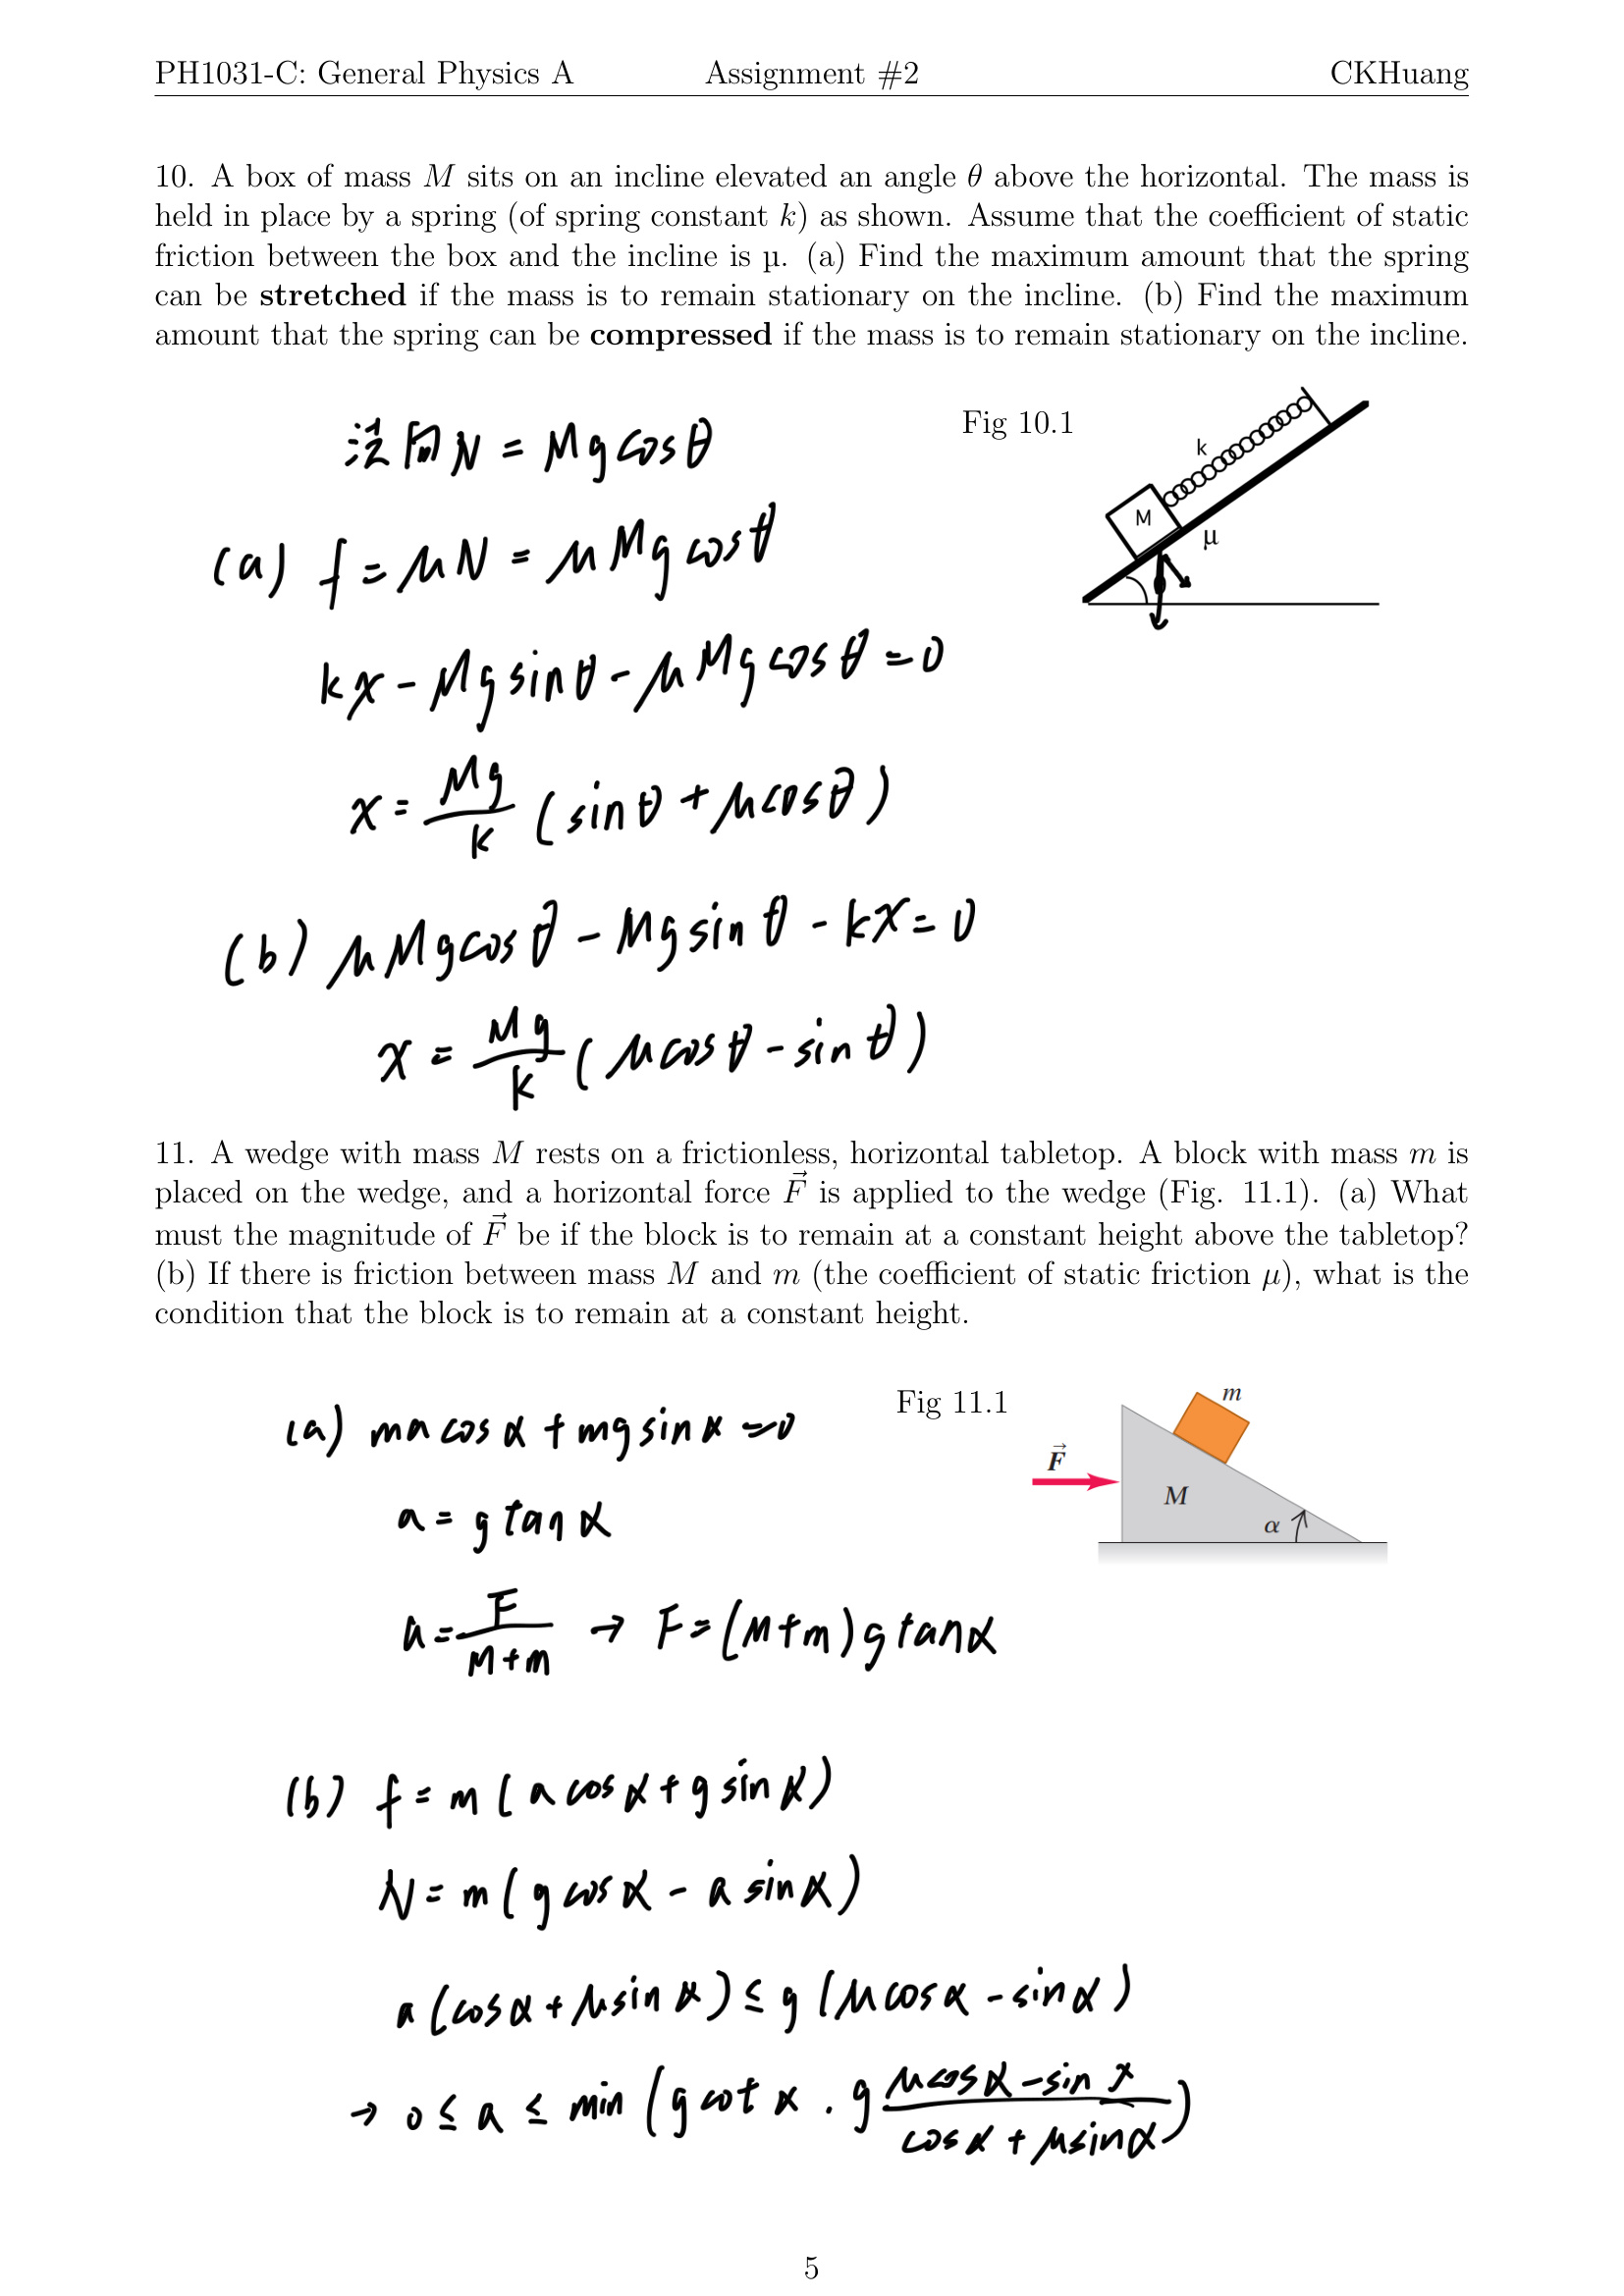 PH1031-C: General Physics A Assignment #2 CKHuang
10. A box of mass M sits on an incline elevated an angle θ above the horizontal. The mass is
held in place by a spring (of spring constant k) as shown. Assume that the coefficient of static
friction between the box and the incline is µ. (a) Find the maximum amount that the spring
can be stretched if the mass is to remain stationary on the incline. (b) Find the maximum
amount that the spring can be compressed if the mass is to remain stationary on the incline.
Fig 10.1
k
M
μ
法向 N = Mg cosθ
(a) f = μN = μMg cosθ
kx - Mg sinθ - μMg cosθ = 0
x = Mg/k (sinθ + μcosθ)
(b) μMg cosθ - Mg sinθ - kx = 0
x = Mg/k (μcosθ - sinθ)
11. A wedge with mass M rests on a frictionless, horizontal tabletop. A block with mass m is
placed on the wedge, and a horizontal force F⃗ is applied to the wedge (Fig. 11.1). (a) What
must the magnitude of F⃗ be if the block is to remain at a constant height above the tabletop?
(b) If there is friction between mass M and m (the coefficient of static friction μ), what is the
condition that the block is to remain at a constant height.
Fig 11.1
m
F⃗
M
α
(a) ma cosα + mg sinα = 0
a = g tanα
a = F/(M+m) → F = (M+m)g tanα
(b) f = m(a cosα + g sinα)
N = m(g cosα - a sinα)
a(cosα + μsinα) ≤ g(μcosα - sinα)
→ 0 ≤ a ≤ min(g cotα . g (μcosα - sinα)/(cosα + μsinα))
5